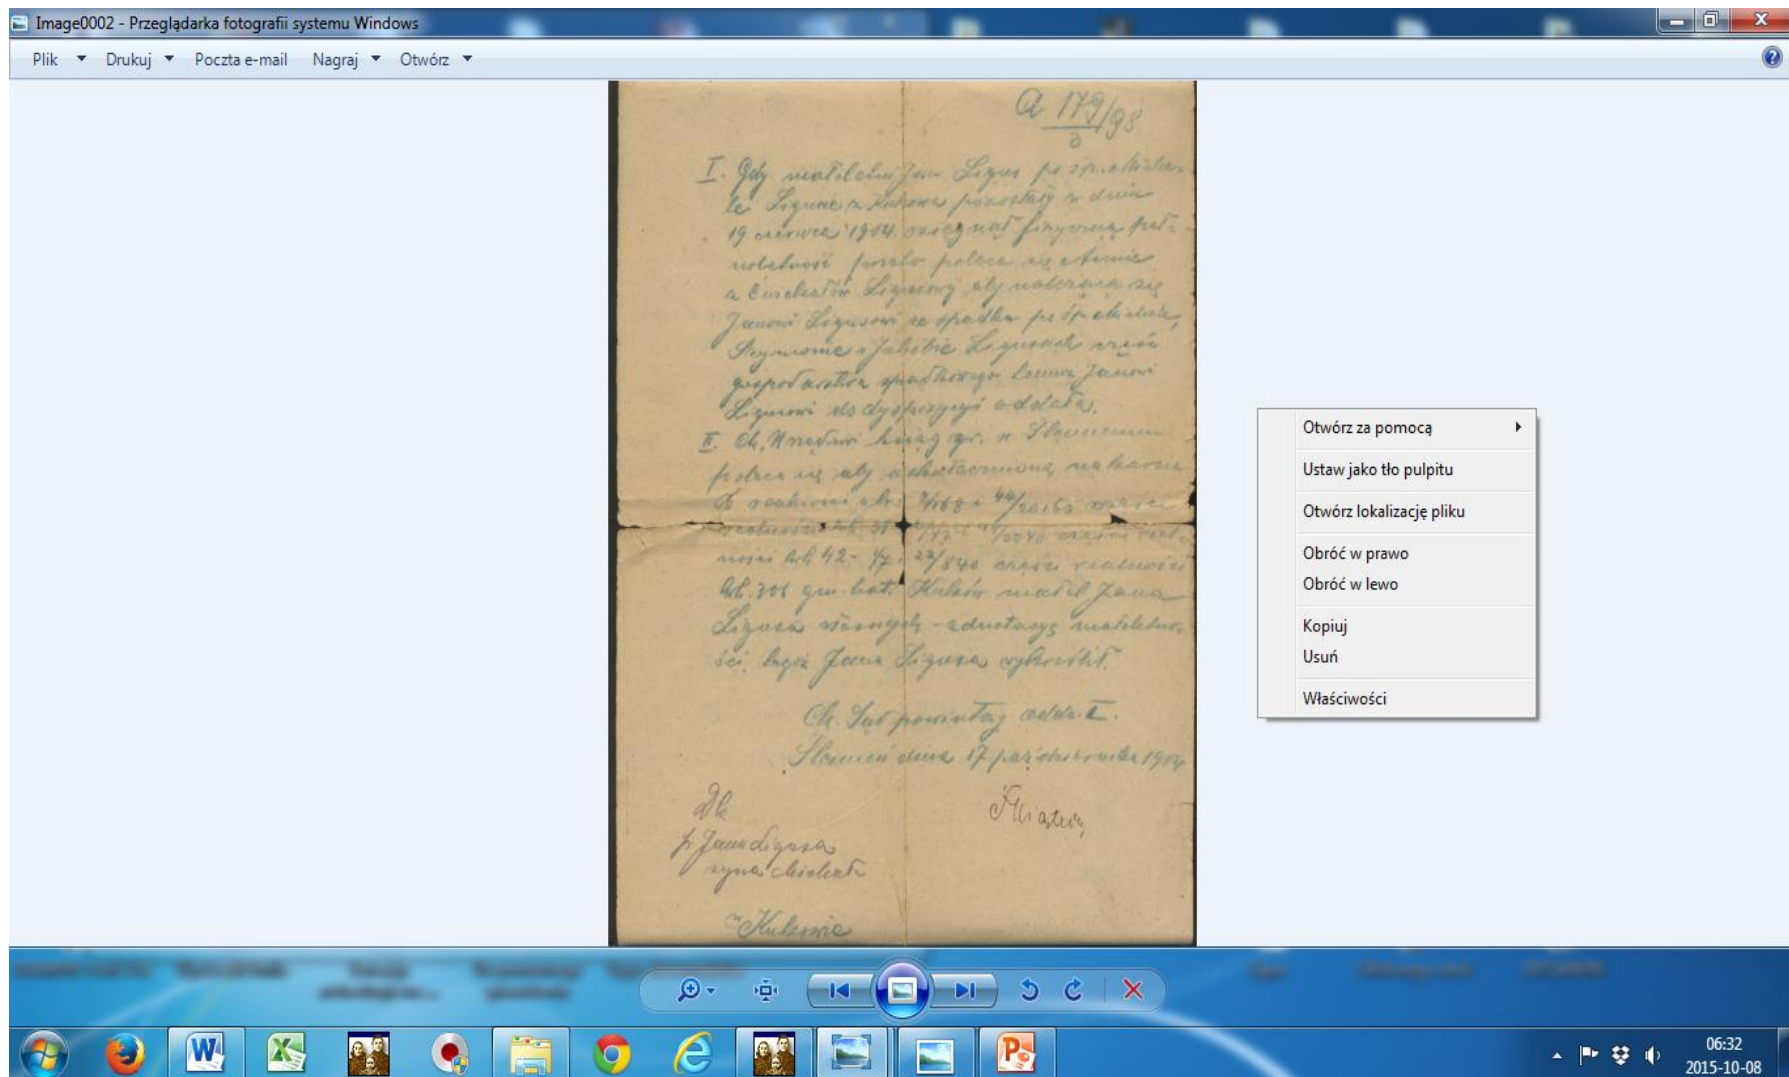 Image0002 - Przeglądarka fotografii systemu Windows
Plik Drukuj Poczta e-mail Nagraj Otwórz
A 179/98
3
I. Gdy małoletni Jan Ligus po śp. Micha-
le Ligusie z Kukowa pozostały w dniu
19 czerwca 1904 osiągnął fizyczną peł-
noletność przeto poleca się Annie
z Ligusowy aby należącą się
Janowi Ligusowi ze spadku po śp. Michale,
Szymonie i Jakóbie Ligusach część
gospodarstwa spadkowego temuż Janowi
Ligusowi do dyspozycyi oddała.
II. Ck. Urzędowi ksiąg gr. w Ślemieniu
poleca się aby uskutecznioną na karcie
B realności 7/168 i 44/20160 części
realności lwh 38
ności lwh 42 - i 22/840 części realności
lwh. 301 gm. kat. Kuków małol Jana
Ligusa własnych - adnotacyę małoletno-
ści tegoż Jana Ligusa wykreślił.
Ck. Sąd powiatowy oddz. I.
Ślemień dnia 17 października 1904
Dla
p. Jana Ligusa
syna Michała
w Kukowie
Otwórz za pomocą
Ustaw jako tło pulpitu
Otwórz lokalizację pliku
Obróć w prawo
Obróć w lewo
Kopiuj
Usuń
Właściwości
06:32
2015-10-08